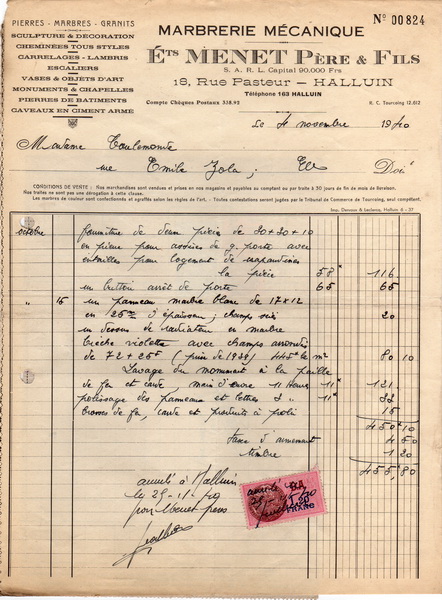 PIERRES - MARBRES - GRANITS
SCULPTURE & DÉCORATION
CHEMINÉES TOUS STYLES
CARRELAGES - LAMBRIS
ESCALIERS
VASES & OBJETS D'ART
MONUMENTS & CHAPELLES
PIERRES DE BATIMENTS
CAVEAUX EN CIMENT ARMÉ
N° 00824
MARBRERIE MÉCANIQUE
Éts MENET Père & Fils
S. A. R. L. Capital 90.000 Frs
18, Rue Pasteur — HALLUIN
Téléphone 163 HALLUIN
Compte Chèques Postaux 338.92
R. C. Tourcoing 12.012
Le 4 novembre 1940
Madame
rue Emile Zola; Doit
CONDITIONS DE VENTE : Nos marchandises sont vendues et prises en nos magasins et payables au comptant ou par traite à 30 jours de fin de mois de livraison.
Nos traites ne sont pas une dérogation à cette clause.
Les marbres de couleur sont confectionnés et agrafés selon les règles de l'art. - Toutes contestations seront jugées par le Tribunal de Commerce de Tourcoing, seul compétent.
octobre fourniture de deux pièces de 30 + 30 + 10
en pierre pour assises de g. porte avec
entailles pour logement de
la pièce 58 116
un arrêt de porte 65 65
" 15 un panneau marbre blanc de 17 x 12
en d'épaisseur; champs scié 20
un dessus de radiateur en marbre
brèche violette avec champs arrondis
de 72 + 25 (prix de 1939) 445 le m² 80 10
Lavage du monument à la paille
de fer et main d'œuvre 11 Heures 11 121
polissage des panneaux et lettres 3 " 11 33
brosses de fer, et produits à poli 15
450 10
taxe d'armement 4 50
timbre 1 20
455,80
à Halluin
le 25-11-40
pour Menet père